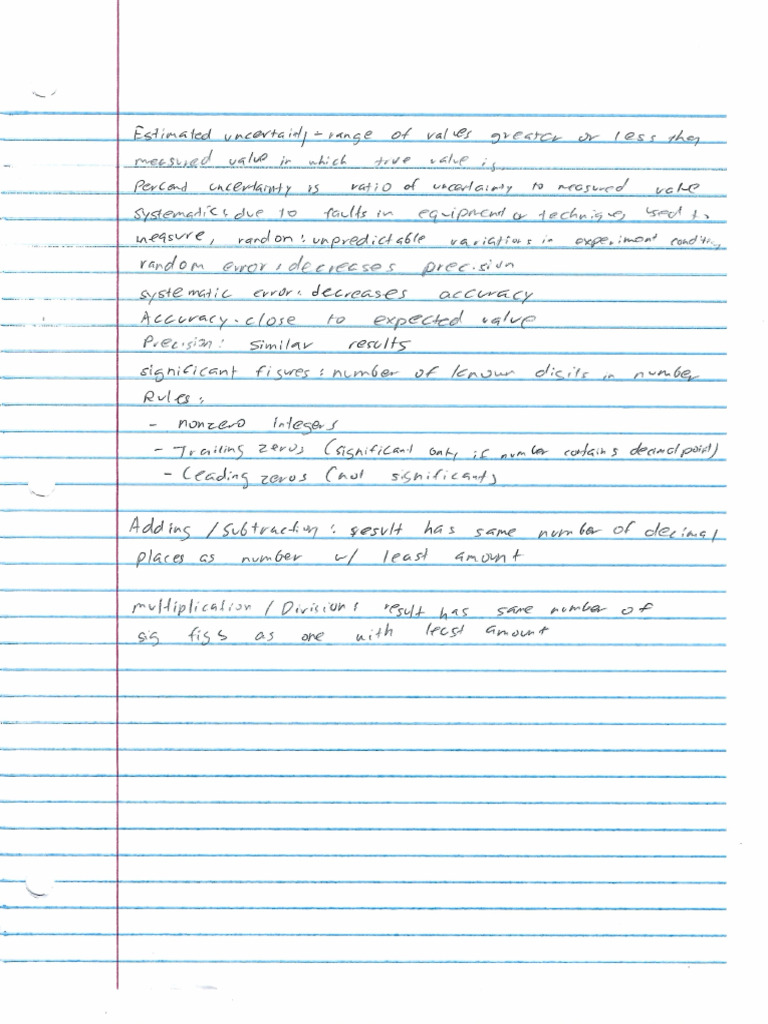 Estimated uncertainty - range of values greater or less than
measured value in which true value is
Percent uncertainty is ratio of uncertainty to measured value
systematic: due to faults in equipment or techniques used to
measure, random: unpredictable variations in experiment conditions
random error: decreases precision
systematic error: decreases accuracy
Accuracy: close to expected value
Precision: similar results
significant figures: number of known digits in number
Rules:
- nonzero integers
- Trailing zeros (significant only if number contains decimal point)
- Leading zeros (not significant)
Adding / Subtraction: result has same number of decimal
places as number w/ least amount
multiplication / Division: result has same number of
sig figs as one with least amount